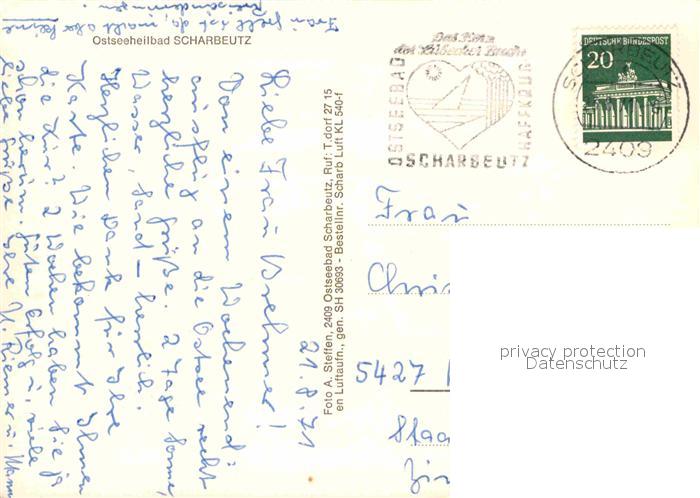 Frau Sell ist da, macht aber keine
Reisendungen.
Ostseeheilbad SCHARBEUTZ
21.8.71
Liebe Frau Brehmer!
Von einem Wochenend=
ausflug an die Ostsee recht
herzliche Grüße. 2 Tage Sonne,
Wasser, Sand – herrlich.
Herzlichen Dank für Ihre
Karte. Wie bekommt Ihnen
die Kur? 2 Wochen haben Sie ja
schon herum. Guten Erfolg u. viele
liebe Grüße Ihre U. Riemer u. Mann
Foto A. Steffen, 2409 Ostseebad Scharbeutz, Ruf: T.dorf 27 15
en Luftaufn., gen. SH 30693 - Bestellnr. Scharb Luft KL 540-f
Das Herz
der Lübecker Bucht
OSTSEEBAD
HAFFKRUG
SCHARBEUTZ
DEUTSCHE BUNDESPOST
20
2409
Frau
5427
privacy protection
Datenschutz